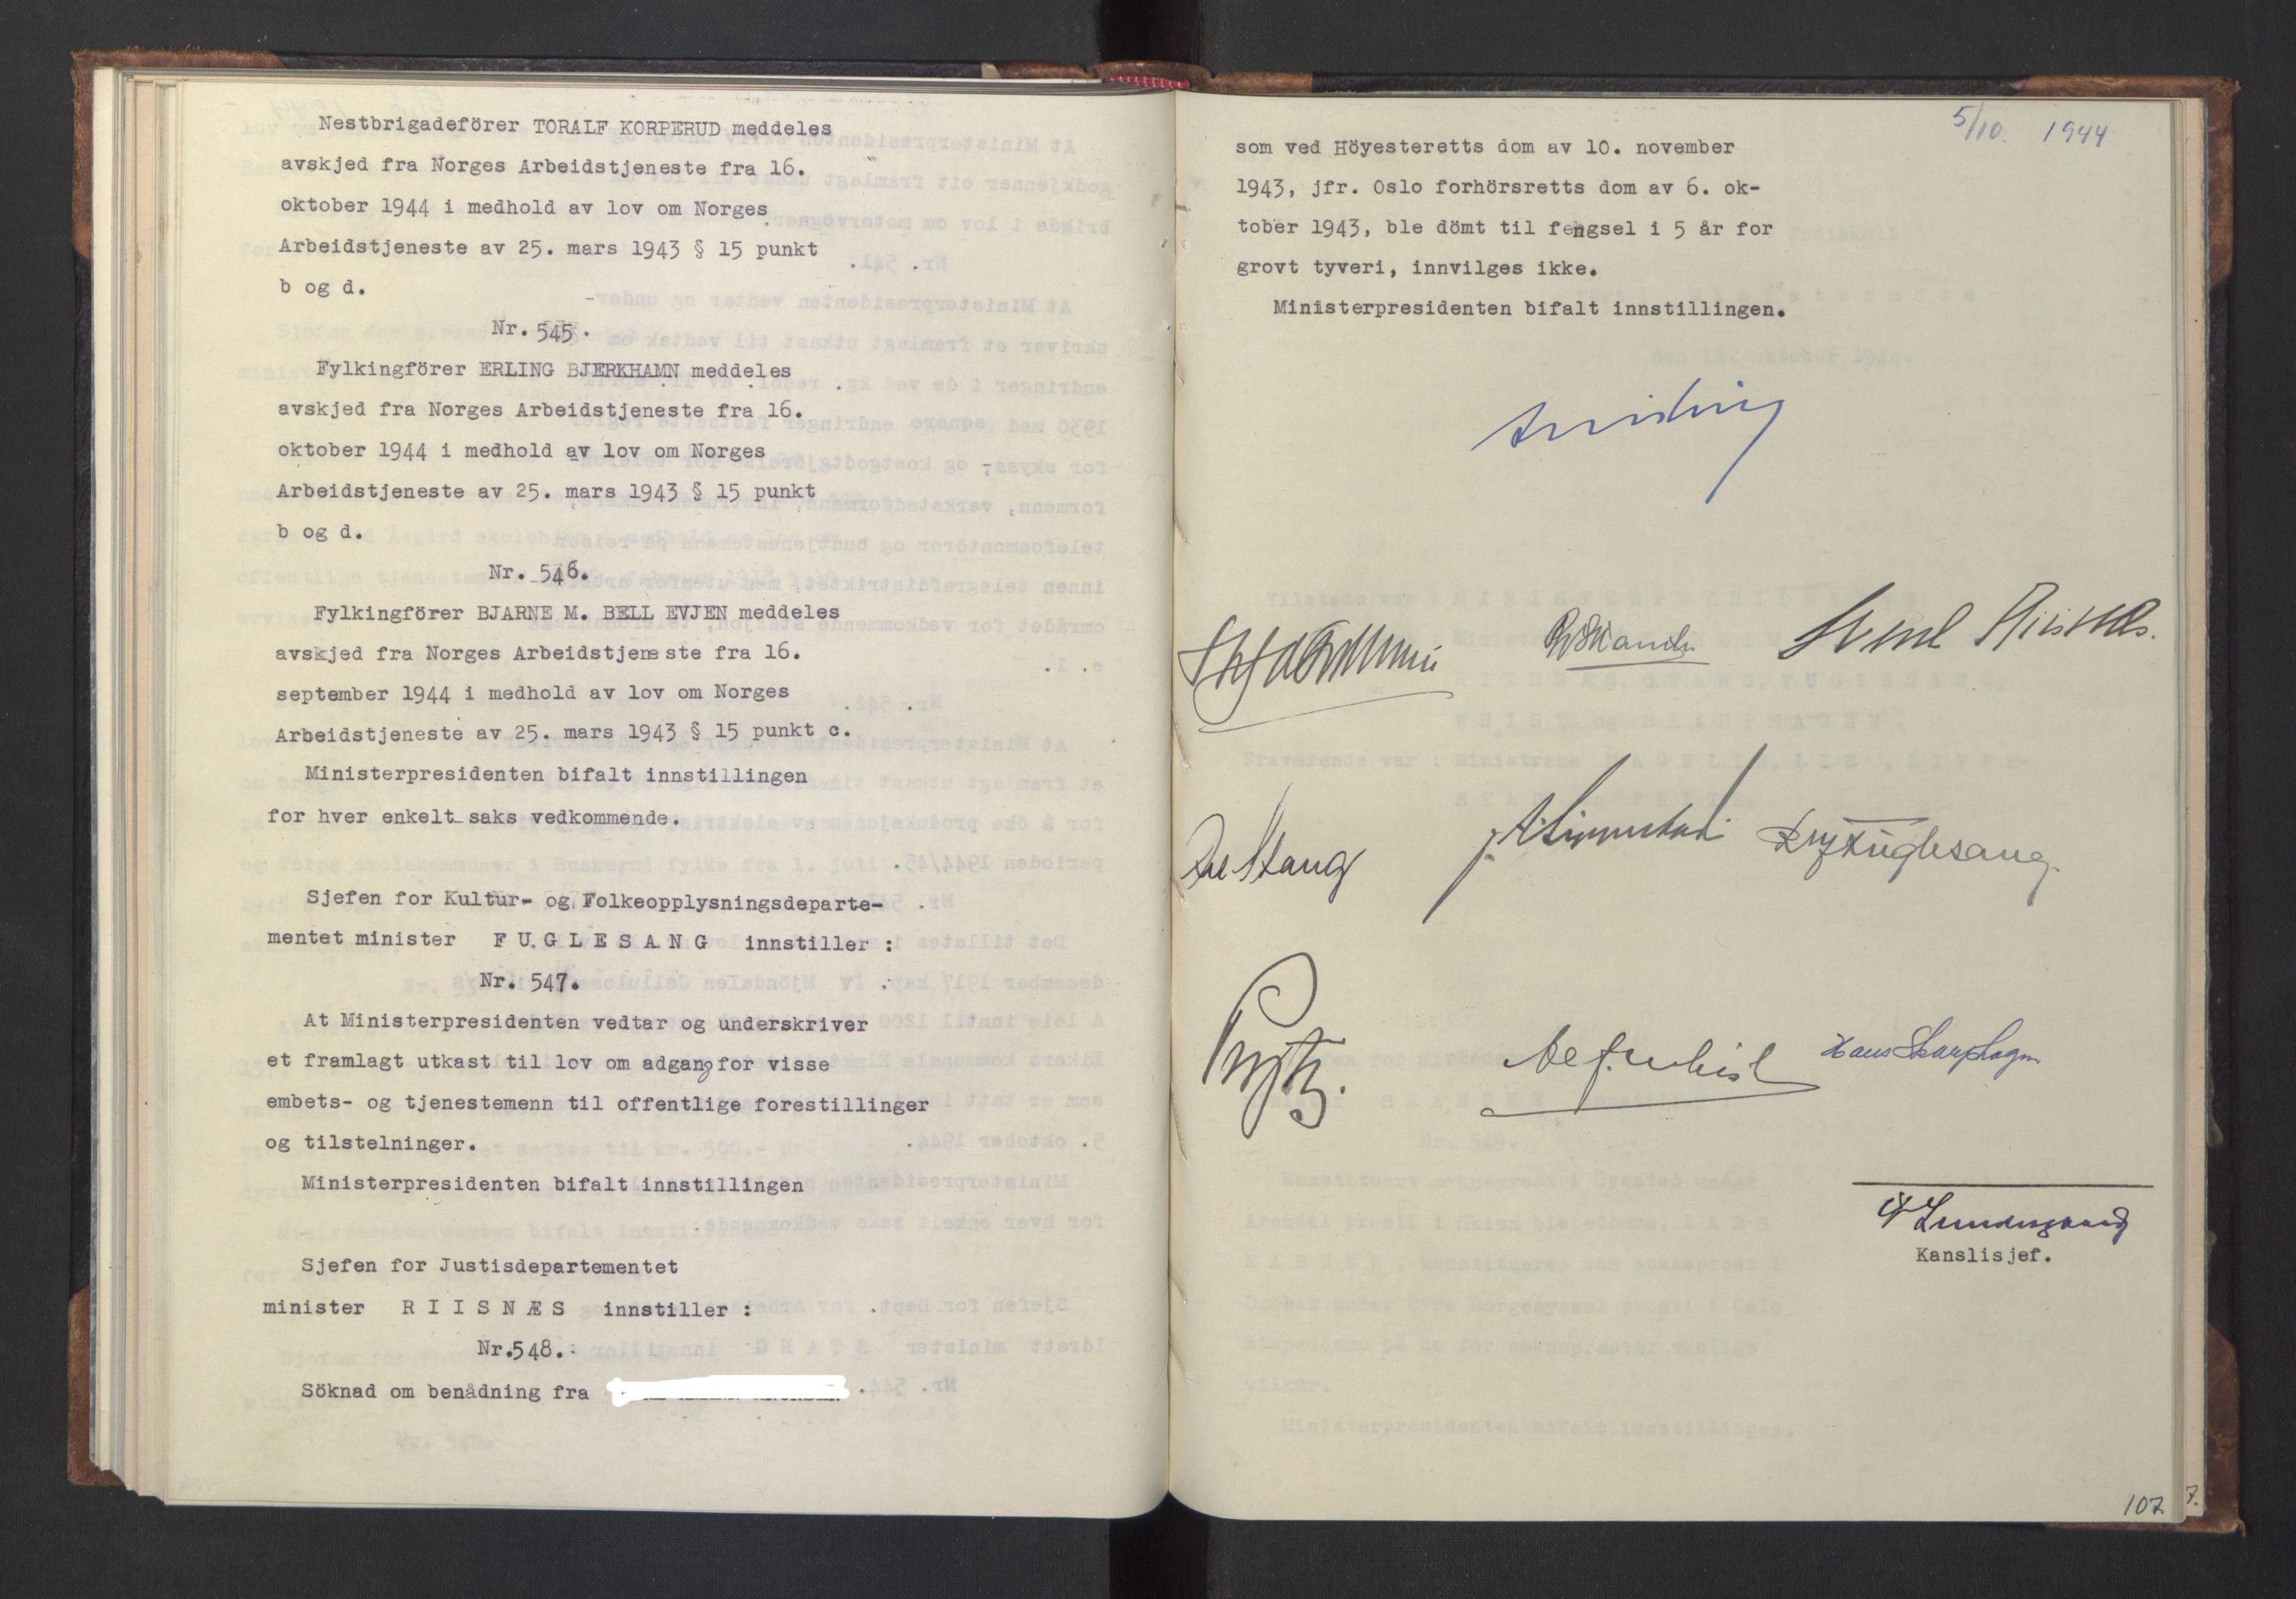 Nestbrigadeförer TORALF KORPERUD meddeles
avskjed fra Norges Arbeidstjeneste fra 16.
oktober 1944 i medhold av lov om Norges
Arbeidstjeneste av 25. mars 1943 § 15 punkt
b og d.
Nr. 545.
Fylkingförer ERLING BJERKHAMN meddeles
avskjed fra Norges Arbeidstjeneste fra 16.
oktober 1944 i medhold av lov om Norges
Arbeidstjeneste av 25. mars 1943 § 15 punkt
b og d.
Nr. 546.
Fylkingförer BJARNE M. BELL EVJEN meddeles
avskjed fra Norges Arbeidstjeneste fra 16.
september 1944 i medhold av lov om Norges
Arbeidstjeneste av 25. mars 1943 § 15 punkt c.
Ministerpresidenten bifalt innstillingen
for hver enkelt saks vedkommende.
Sjefen for Kultur- og Folkeopplysningsdeparte-
mentet minister F U G L E S A N G innstiller :
Nr. 547.
At Ministerpresidenten vedtar og underskriver
et framlagt utkast til lov om adgang for visse
embets- og tjenestemenn til offentlige forestillinger
og tilstelninger.
Ministerpresidenten bifalt innstillingen
Sjefen for Justisdepartementet
minister R I I S N Æ S innstiller :
Nr.548.
Söknad om benådning fra
5/10. 1944
som ved Höyesteretts dom av 10. november
1943, jfr. Oslo forhörsretts dom av 6. ok-
tober 1943, ble dömt til fengsel i 5 år for
grovt tyveri, innvilges ikke.
Ministerpresidenten bifalt innstillingen.
Sverre Riisnæs.
Axel Stang
R J Fuglesang
Prytz.
Alf L. Whist
Hans Skarphagen
Kanslisjef.
107.